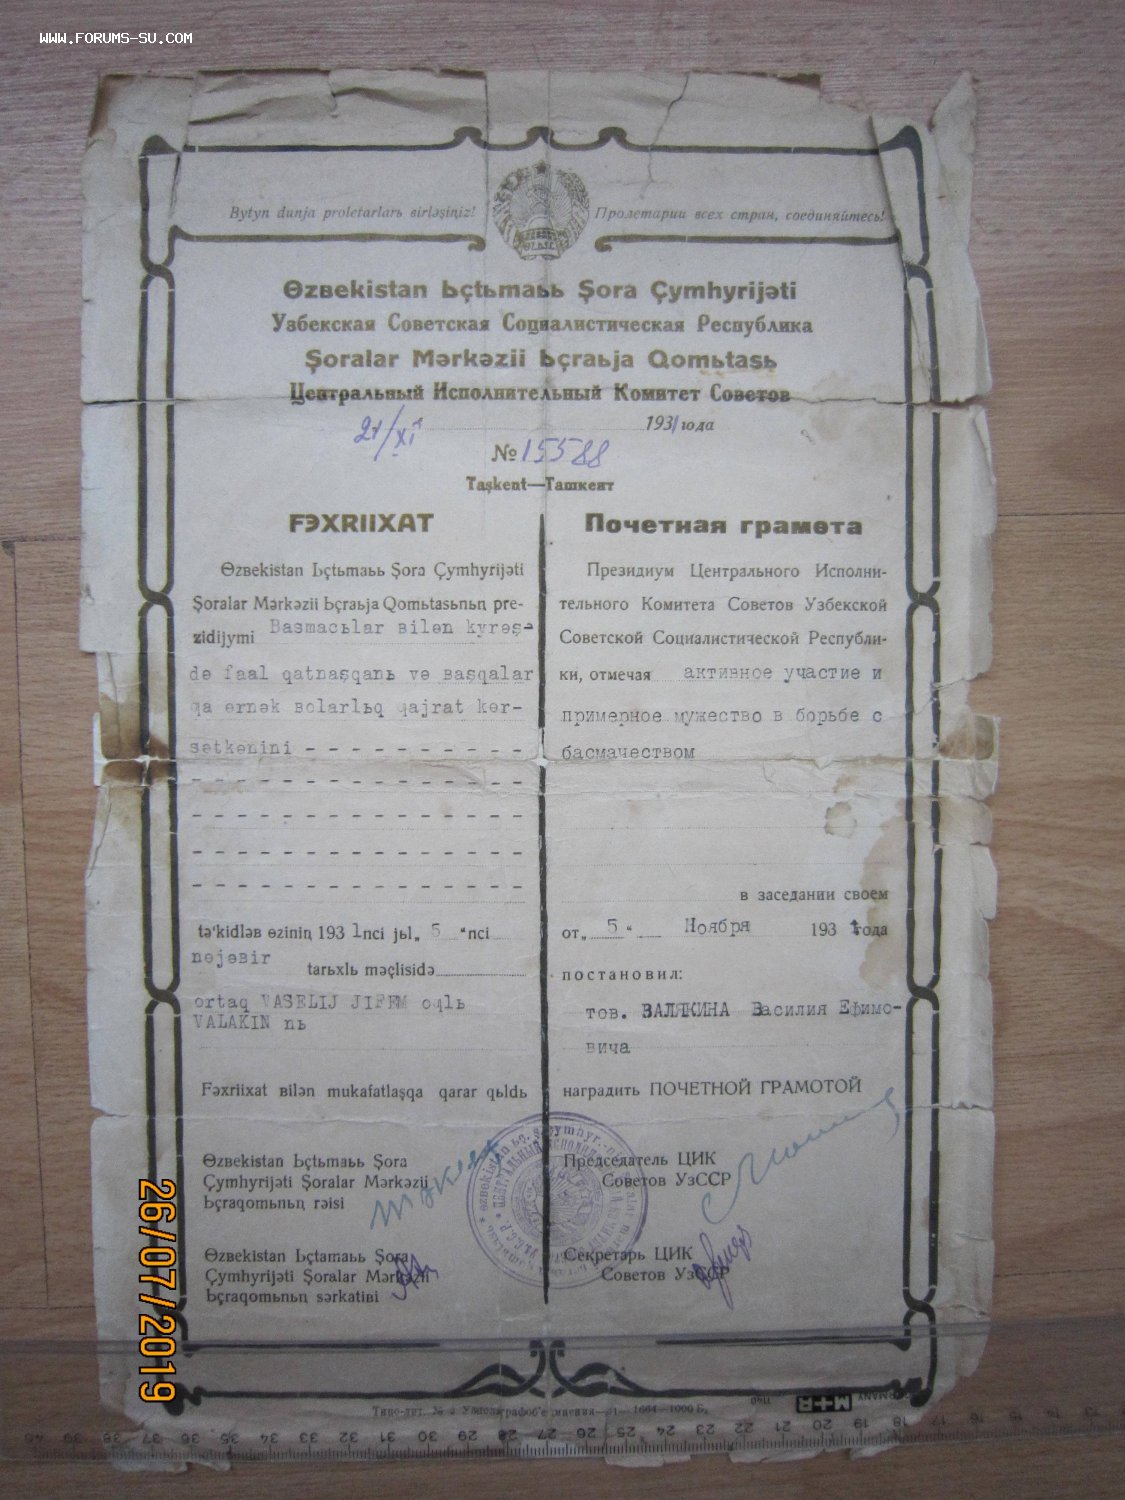 WWW.FORUMS-SU.COM
Bytyn dunja proletarlarь вirləşiniz!
Пролетарии всех стран, соединяйтесь!
Өzвekistan Ьçtьmaьь Şora Çymhyrijəti
Узбекская Советская Социалистическая Республика
Şoralar Mərkəzii Ьçraьja Qomьtasь
Центральный Исполнительный Комитет Советов
21/XI 1931 года
№ 15588
Taşkent—Ташкент
FƏXRIIXAT
Өzвekistan Ьçtьmaьь Şora Çymhyrijəti
Şoralar Mərkəzii Ьçraьja Qomьtasьnьꞑ pre-
zidijymi Basmacьlar вilən kyrəş-
də faal qatnaşqanь və вaşqalar
qa ɵrnək вolarlьq qajrat kɵr-
sətkənini - - - - - - - - - -
tə'kidləв ɵziniꞑ 1931nci jьl „5“nci
nojəвir tarьxlь məçlisidə
ortaq VASELIJ JIFEM oƣlь
VALAKIN nь
Fəxriixat вilən mukafatlaşqa qarar qьldь
Почетная грамота
Президиум Центрального Исполни-
тельного Комитета Советов Узбекской
Советской Социалистической Республи-
ки, отмечая активное участие и
примерное мужество в борьбе с
басмачеством
в заседании своем
от „5“ Ноября 1931 года
постановил:
тов. ВАЛЯКИНА Василия Ефимо-
вича
наградить ПОЧЕТНОЙ ГРАМОТОЙ
Өzвekistan Ьçtьmaьь Şora
Çymhyrijəti Şoralar Mərkəzii
Ьçraqomьnьꞑ rəisi
Председатель ЦИК
Советов УзССР
Өzвekistan Ьçtəmaьь Şora
Çymhyrijəti Şoralar Mərkəzii
Ьçraqomьnьꞑ sərkatiвi
Секретарь ЦИК
Советов УзССР
26/07/2019
M+R
GERMANY
40 39 38 37 36 35 34 33 32 31 30 29 28 27 26 25 24 23 22 21 20 19 18 17 16 15 14 13